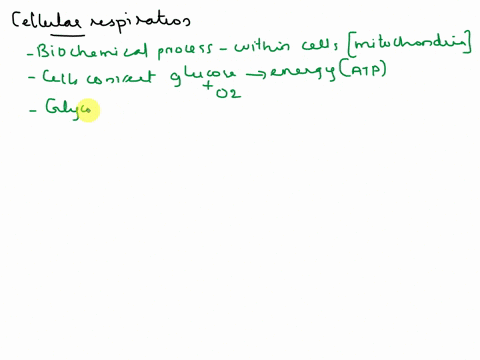 Cellular respiration
- Biochemical process - within cells [mitochondria]
- Cells convert glucose → energy (ATP)
+ O2
- Glyco